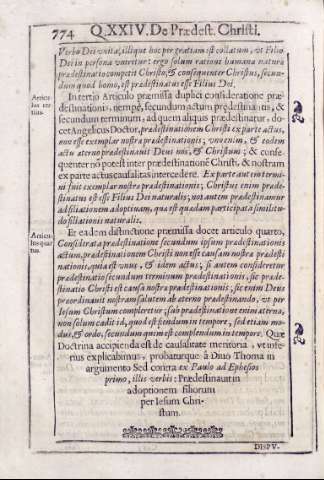 774 Q. XXIV. De Prædest. Christi.
Verbo Dei vnita, illique hoc per gratiam est collatum, vt Filio
Dei in persona vniretur: ergo solum ratione humanæ naturæ
prædestinatio competit Christo, & consequenter Christus, secun-
dum quod homo, est prædestinatus esse Filius Dei.
Articu-
lus ter-
tius.
In tertio Articulo præmissa duplici consideratione præ-
destinationis, nempè, secundum actum prędestinantis, &
secundum terminum, ad quem aliquis prædestinatur, do-
cet Angelicus Doctor, prædestinationem Christi ex parte actus,
non esse exemplar nostræ prædestinationis; vno enim, & eodem
actu æterno prædestinauit Deus nos, & Christum; & conse-
quenter nō potest inter prædestinationē Christi, & nostram
ex parte actus causalitas intercedere. Ex parte autem termi-
ni fuit exemplar nostræ prædestinationis; Christus enim præde-
stinatus est esse Filius Dei naturalis; nos autem prædestinamur
ad filiationem adoptiuam, quæ est quædam participata similitu-
do filiationis naturalis.
Articu-
lus quar-
tus.
Et eadem distinctione præmissa docet articulo quarto,
Considerata prædestinatione secundum ipsum prædestinationis
actum, prædestinationem Christi non esse causam nostræ prædesti-
nationis, quia est vnus, & idem actus; si autem consideretur
prædestinatio secundum terminum prædestinationis, sic præde-
stinatio Christi est causa nostræ prædestinationis; sic enim Deus
præordinauit nostram salutem ab æterno prædestinando, vt per
Iesum Christum compleretur; sub prædestinatione enim æterna,
non solum cadit id, quod est fiendum in tempore, sed etiam mo-
dus, & ordo, secundum quem est complendum in tempore. Quæ
Doctrina accipienda est de causalitate meritoria, vt infe-
rius explicabimus, probaturque à Diuo Thoma in
argumento Sed contra ex Paulo ad Ephesos
primo, illis verbis: Prædestinauit in
adoptionem filiorum
per Iesum Chri-
stum.
DISPV-